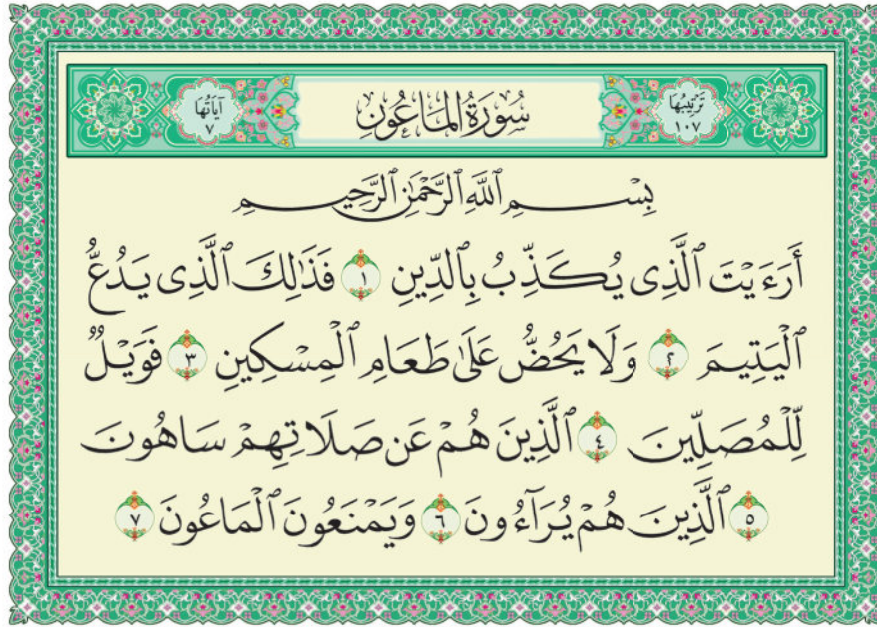 ترتيبها
١٠٧
سُورَةُ الْمَاعُونِ
آياتها
٧
بِسْمِ ٱللَّهِ ٱلرَّحْمَٰنِ ٱلرَّحِيمِ
أَرَءَيْتَ ٱلَّذِى يُكَذِّبُ بِٱلدِّينِ ١ فَذَٰلِكَ ٱلَّذِى يَدُعُّ
ٱلْيَتِيمَ ٢ وَلَا يَحُضُّ عَلَىٰ طَعَامِ ٱلْمِسْكِينِ ٣ فَوَيْلٌ
لِّلْمُصَلِّينَ ٤ ٱلَّذِينَ هُمْ عَن صَلَاتِهِمْ سَاهُونَ
٥ ٱلَّذِينَ هُمْ يُرَآءُونَ ٦ وَيَمْنَعُونَ ٱلْمَاعُونَ ٧